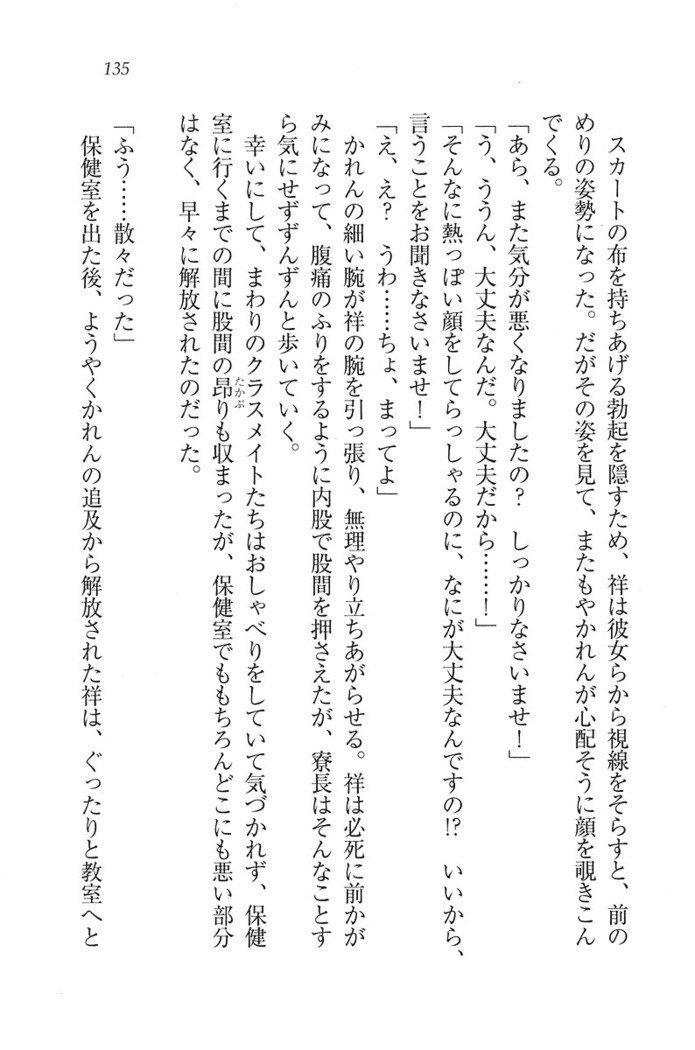 135
スカートの布を持ちあげる勃起を隠すため、祥は彼女らから視線をそらすと、前の
めりの姿勢になった。だがその姿を見て、またもやかれんが心配そうに顔を覗きこん
でくる。
「あら、また気分が悪くなりましたの？　しっかりなさいませ！」
「う、ううん、大丈夫なんだ。大丈夫だから……！」
「そんなに熱っぽい顔をしてらっしゃるのに、なにが大丈夫なんですの!?　いいから、
言うことをお聞きなさいませ！」
「え、え？　うわ……ちょ、まってよ」
かれんの細い腕が祥の腕を引っ張り、無理やり立ちあがらせる。祥は必死に前かが
みになって、腹痛のふりをするように内股で股間を押さえたが、寮長はそんなことす
ら気にせずずんずんと歩いていく。
幸いにして、まわりのクラスメイトたちはおしゃべりをしていて気づかれず、保健
室に行くまでの間に股間の昂たかぶりも収まったが、保健室でももちろんどこにも悪い部分
はなく、早々に解放されたのだった。
「ふう……散々だった」
保健室を出た後、ようやくかれんの追及から解放された祥は、ぐったりと教室へと